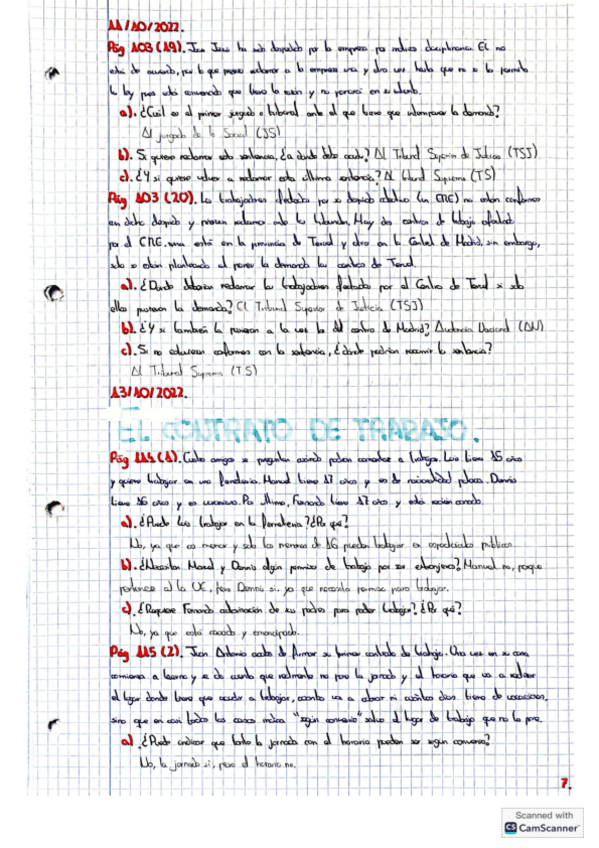 11/10/2022.
Pág 103 (19). Juan Jesús ha sido despedido por la empresa por motivos disciplinarios. Él no
está de acuerdo, por lo que piensa reclamar a la empresa una y otra vez hasta que no se lo permita
la ley pues está convencido que tiene la razón y no parará en su intento.
a). ¿Cuál es el primer juzgado o tribunal ante el que tiene que interponer la demanda?
Al juzgado de lo Social (JS)
b). Si quisiera reclamar esta sentencia, ¿a dónde debe acudir? Al Tribunal Superior de Justicia (TSJ)
c). ¿Y si quiere volver a reclamar esta última sentencia? Al Tribunal Supremo (TS)
Pág 103 (20). Los trabajadores afectados por un despido colectivo (un ERE) no están conformes
en dicho despido y piensan reclamar ante los tribunales. Hay dos centros de trabajo afectados
por el ERE, uno está en la provincia de Teruel y otro en la Capital de Madrid, sin embargo,
solo se están planteando el poner la demanda los centros de Teruel.
a). ¿Dónde deberían reclamar los trabajadores afectados por el Centro de Teruel si solo
ellos pusieran la demanda? El Tribunal Superior de Justicia (TSJ)
b). ¿Y si también la pusieran a la vez los del centro de Madrid? Audiencia Nacional (AN)
c). Si no estuvieran conformes con la sentencia, ¿dónde podrían recurrir la sentencia?
Al Tribunal Supremo (TS)
13/10/2022.
EL CONTRATO DE TRABAJO.
Pág 114 (1). Cuatro amigos se preguntan cuándo pueden comenzar a trabajar. Luis tiene 15 años
y quiere trabajar en una ferretería. Manuel tiene 17 años y es de nacionalidad polaca. Dennis
tiene 16 años y es Por último, Fernando tiene 17 años y está recién casado.
a). ¿Puede Luis trabajar en la ferretería? ¿Por qué?
No, ya que es menor y solo los menores de 16 pueden trabajar en espectáculos públicos.
b). ¿Necesitan Manuel y Dennis algún permiso de trabajo por ser extranjeros? Manuel no, porque
pertenece a la UE, pero Dennis si, ya que necesita permiso para trabajar.
c). ¿Requiere Fernando autorización de sus padres para poder trabajar? ¿Por qué?
No, ya que está casado y emancipado.
Pág 115 (2). Juan Antonio acaba de firmar su primer contrato de trabajo. Una vez en su casa,
comienza a leerlo y se da cuenta que realmente no pone la jornada y el horario que va a realizar
el lugar donde tiene que acudir a trabajar, cuánto va a cobrar ni cuántos días tiene de vacaciones,
sino que en casi todos los casos indica "según convenio" salvo el lugar de trabajo que no lo pone.
a). ¿Puede indicar que tanto la jornada con el horario puedan ser según convenio?
No, la jornada si, pero el horario no.
7.
Scanned with
CS CamScanner